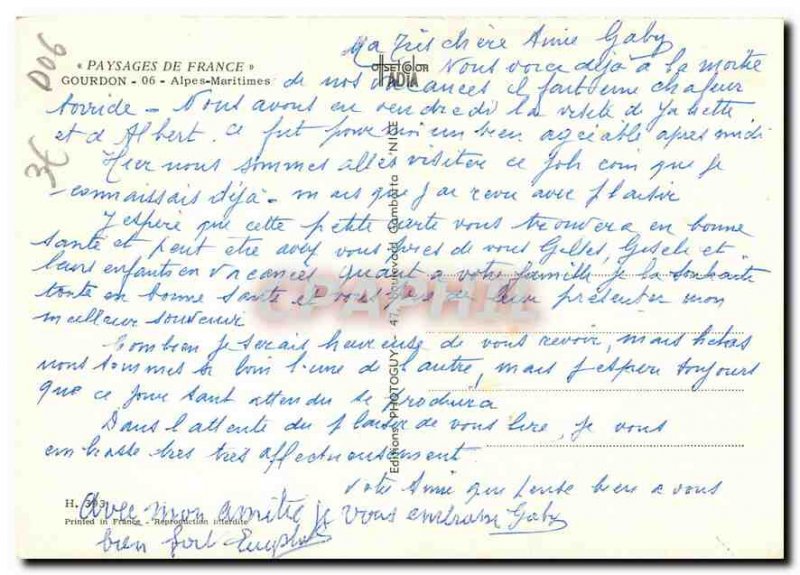 Ma Très chère Amie Gaby
« PAYSAGES DE FRANCE »
Nous voici déjà à la moitié
GOURDON - 06 - Alpes-Maritimes
de nos vacances il fait une chaleur
torride - Nous avons eu vendredi la visite de
et d'Albert. ce fut pour moi un bien agréable après midi
Hier nous sommes allés visiter ce joli coin que je
connaissais déjà - mais que j'ai revu avec plaisir
J'espère que cette petite carte vous trouvera en bonne
santé et peut être avez vous près de vous Gilles, Gisèle et
leurs enfants en vacances Quant à votre famille je la souhaite
toute en bonne santé et vous de leur présenter mon
meilleur souvenir
Combien je serais heureuse de vous revoir, mais hélas
nous sommes si loin l'une de l'autre, mais j'espère toujours
que ce jour tant attendu se produira
Dans l'attente du plaisir de vous lire, je vous
embrasse très très affectueusement
votre Amie que pense bien a vous
Gaby
Avec mon amitié je vous embrasse
bien fort
D06
3€
OFFSET COLOR
RADIA
Editions PHOTOGUY - 47, Boulevard Gambetta - NICE
H. 393
Printed in France - Reproduction interdite
CPAPHIL